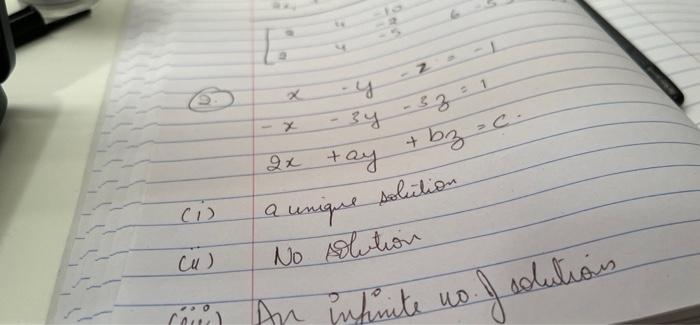 2 4 -2
2 4 -5 6 -5
2. x - y - z = -1
- x - 3y - 3z = 1
2x + ay + bz = c.
(i) a unique solution
(ii) No solution
(iii) An infinite no. of solutions